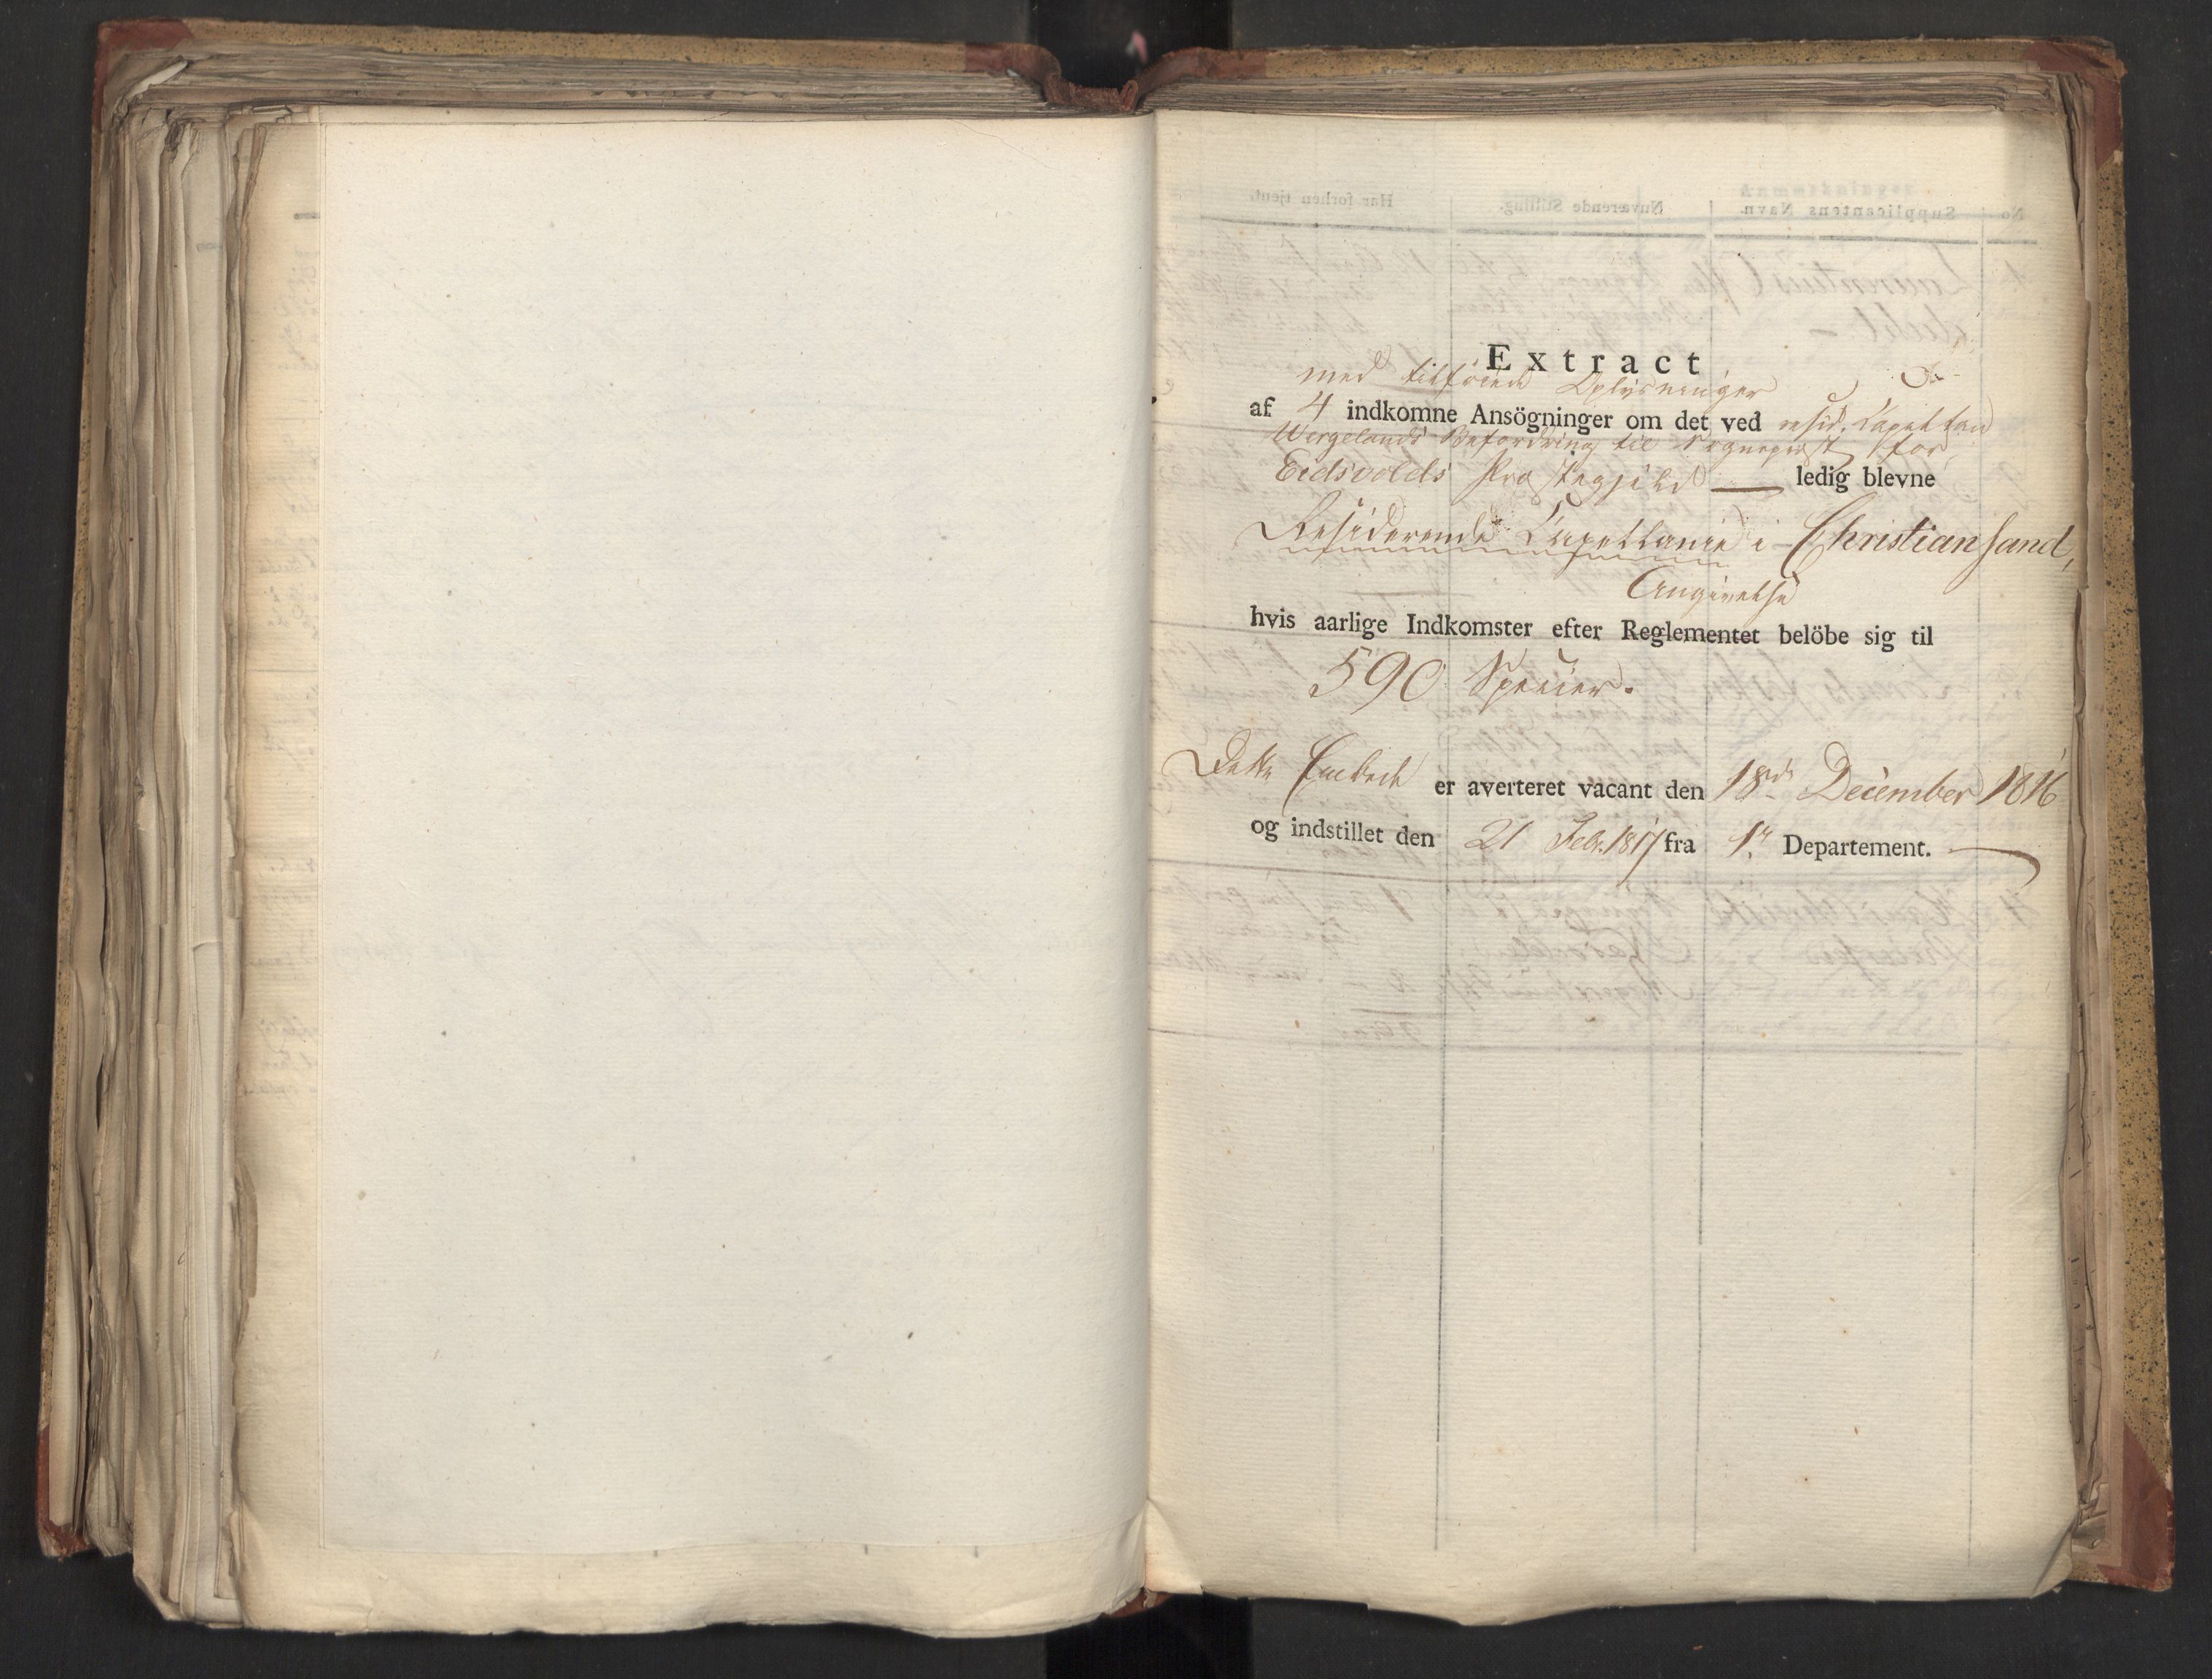 Extract
med tilföiede Oplysninger
af 4 indkomne Ansögninger om det ved resid. Capellan
Wergelands Befordring til Sognepræst for
Eidsvolds Præstegjæld — ledig blevne
Residerende Capellanie i Christiansand,
Angivelse
hvis aarlige Indkomster efter Reglementet belöbe sig til
590 Specier.
Dette Embede er averteret vacant den 18de December 1816
og indstillet den 21 Febr. 1817 fra 1ste Departement.